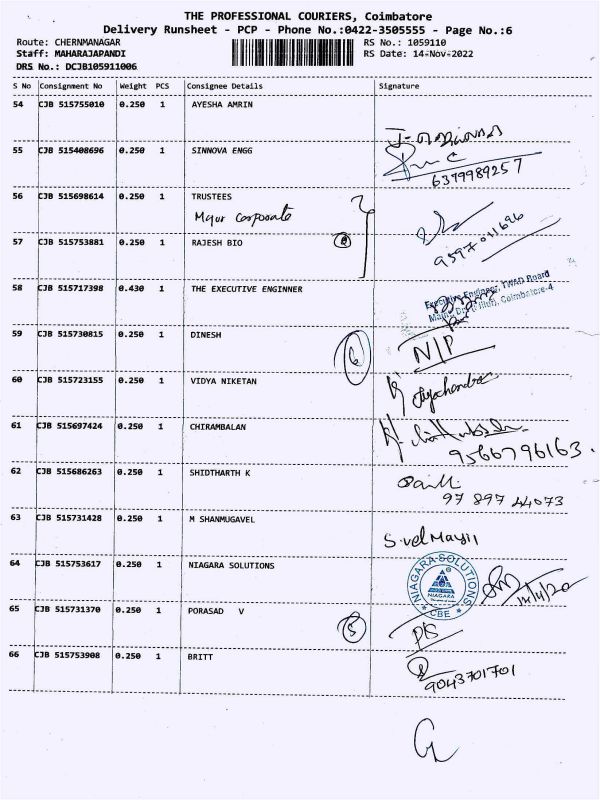 THE PROFESSIONAL COURIERS, Coimbatore
Delivery Runsheet - PCP - Phone No.:0422-3505555 - Page No.:6
Route: CHERNMANAGAR RS No.: 1059110
Staff: MAHARAJAPANDI RS Date: 14-Nov-2022
DRS No.: DCJB105911006
S No Consignment No Weight PCS Consignee Details Signature
54 CJB 515755010 0.250 1 AYESHA AMRIN
55 CJB 515408696 0.250 1 SINNOVA ENGG
6379989257
56 CJB 515698614 0.250 1 TRUSTEES
Major Corporate
57 CJB 515753881 0.250 1 RAJESH BIO
9597011696
58 CJB 515717398 0.430 1 THE EXECUTIVE ENGINNER
Executive Engineer, TWAD Board
Coimbatore-4
59 CJB 515730815 0.250 1 DINESH
6 N/P
60 CJB 515723155 0.250 1 VIDYA NIKETAN
61 CJB 515697424 0.250 1 CHIRAMBALAN
9566796163.
62 CJB 515686263 0.250 1 SHIDTHARTH K
97 897 44073
63 CJB 515731428 0.250 1 M SHANMUGAVEL
S.vel Mayil
64 CJB 515753617 0.250 1 NIAGARA SOLUTIONS
NIAGARA SOLUTIONS
NIAGARA
CBE
65 CJB 515731370 0.250 1 PORASAD V
5 P/S
66 CJB 515753908 0.250 1 BRITT
9043701701